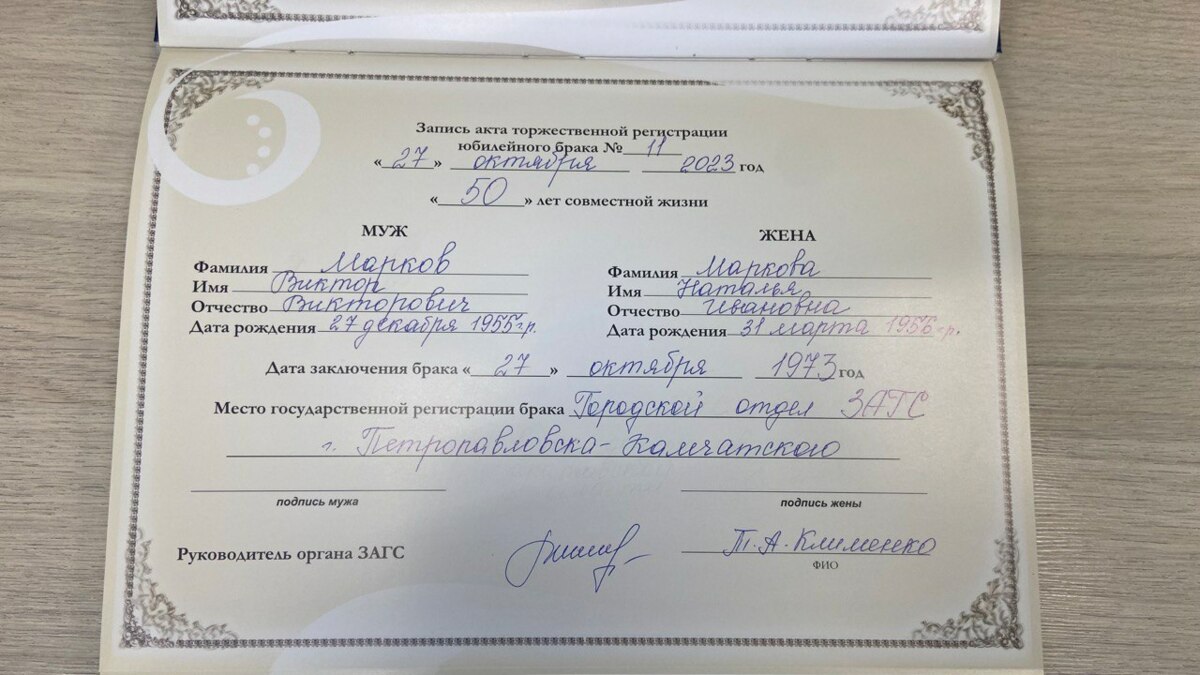 Запись акта торжественной регистрации
юбилейного брака № 11
« 27 » октября 2023 год
« 50 » лет совместной жизни
МУЖ
Фамилия Марков
Имя Виктор
Отчество Викторович
Дата рождения 27 декабря 1955 г.р.
ЖЕНА
Фамилия Маркова
Имя Наталья
Отчество Ивановна
Дата рождения 31 марта 1956 г.р.
Дата заключения брака « 27 » октября 1973 год
Место государственной регистрации брака Городской отдел ЗАГС
г. Петропавловска-Камчатского
подпись мужа
подпись жены
Руководитель органа ЗАГС
Т.А. Клименко
ФИО